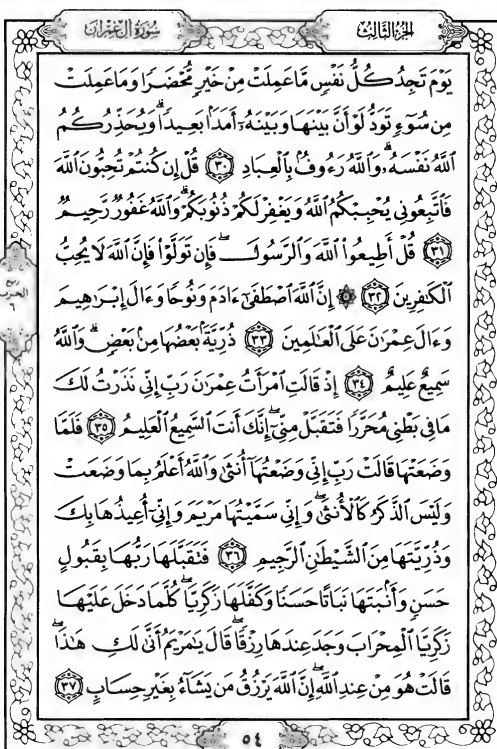 سُورَةُ آلِ عِمْرَان
الجُزْءُ الثَّالِث
يَوْمَ تَجِدُ كُلُّ نَفْسٍ مَّا عَمِلَتْ مِنْ خَيْرٍ مُّحْضَرًا وَمَا عَمِلَتْ
مِن سُوٓءٍ تَوَدُّ لَوْ أَنَّ بَيْنَهَا وَبَيْنَهُۥٓ أَمَدًۢا بَعِيدًا ۗ وَيُحَذِّرُكُمُ
ٱللَّهُ نَفْسَهُۥ ۗ وَٱللَّهُ رَءُوفٌۢ بِٱلْعِبَادِ ٣٠ قُلْ إِن كُنتُمْ تُحِبُّونَ ٱللَّهَ
فَٱتَّبِعُونِى يُحْبِبْكُمُ ٱللَّهُ وَيَغْفِرْ لَكُمْ ذُنُوبَكُمْ ۗ وَٱللَّهُ غَفُورٌ رَّحِيمٌ
٣١ قُلْ أَطِيعُوا۟ ٱللَّهَ وَٱلرَّسُولَ ۖ فَإِن تَوَلَّوْا۟ فَإِنَّ ٱللَّهَ لَا يُحِبُّ
ٱلْكَٰفِرِينَ ٣٢ ۞ إِنَّ ٱللَّهَ ٱصْطَفَىٰٓ ءَادَمَ وَنُوحًا وَءَالَ إِبْرَٰهِيمَ
وَءَالَ عِمْرَٰنَ عَلَى ٱلْعَٰلَمِينَ ٣٣ ذُرِّيَّةًۢ بَعْضُهَا مِنۢ بَعْضٍ ۗ وَٱللَّهُ
سَمِيعٌ عَلِيمٌ ٣٤ إِذْ قَالَتِ ٱمْرَأَتُ عِمْرَٰنَ رَبِّ إِنِّى نَذَرْتُ لَكَ
مَا فِى بَطْنِى مُحَرَّرًا فَتَقَبَّلْ مِنِّىٓ ۖ إِنَّكَ أَنتَ ٱلسَّمِيعُ ٱلْعَلِيمُ ٣٥ فَلَمَّا
وَضَعَتْهَا قَالَتْ رَبِّ إِنِّى وَضَعْتُهَآ أُنثَىٰ وَٱللَّهُ أَعْلَمُ بِمَا وَضَعَتْ
وَلَيْسَ ٱلذَّكَرُ كَٱلْأُنثَىٰ ۖ وَإِنِّى سَمَّيْتُهَا مَرْيَمَ وَإِنِّىٓ أُعِيذُهَا بِكَ
وَذُرِّيَّتَهَا مِنَ ٱلشَّيْطَٰنِ ٱلرَّجِيمِ ٣٦ فَتَقَبَّلَهَا رَبُّهَا بِقَبُولٍ
حَسَنٍ وَأَنۢبَتَهَا نَبَاتًا حَسَنًا وَكَفَّلَهَا زَكَرِيَّا ۖ كُلَّمَا دَخَلَ عَلَيْهَا
زَكَرِيَّا ٱلْمِحْرَابَ وَجَدَ عِندَهَا رِزْقًا ۖ قَالَ يَٰمَرْيَمُ أَنَّىٰ لَكِ هَٰذَا ۖ
قَالَتْ هُوَ مِنْ عِندِ ٱللَّهِ ۖ إِنَّ ٱللَّهَ يَرْزُقُ مَن يَشَآءُ بِغَيْرِ حِسَابٍ ٣٧
٥٤